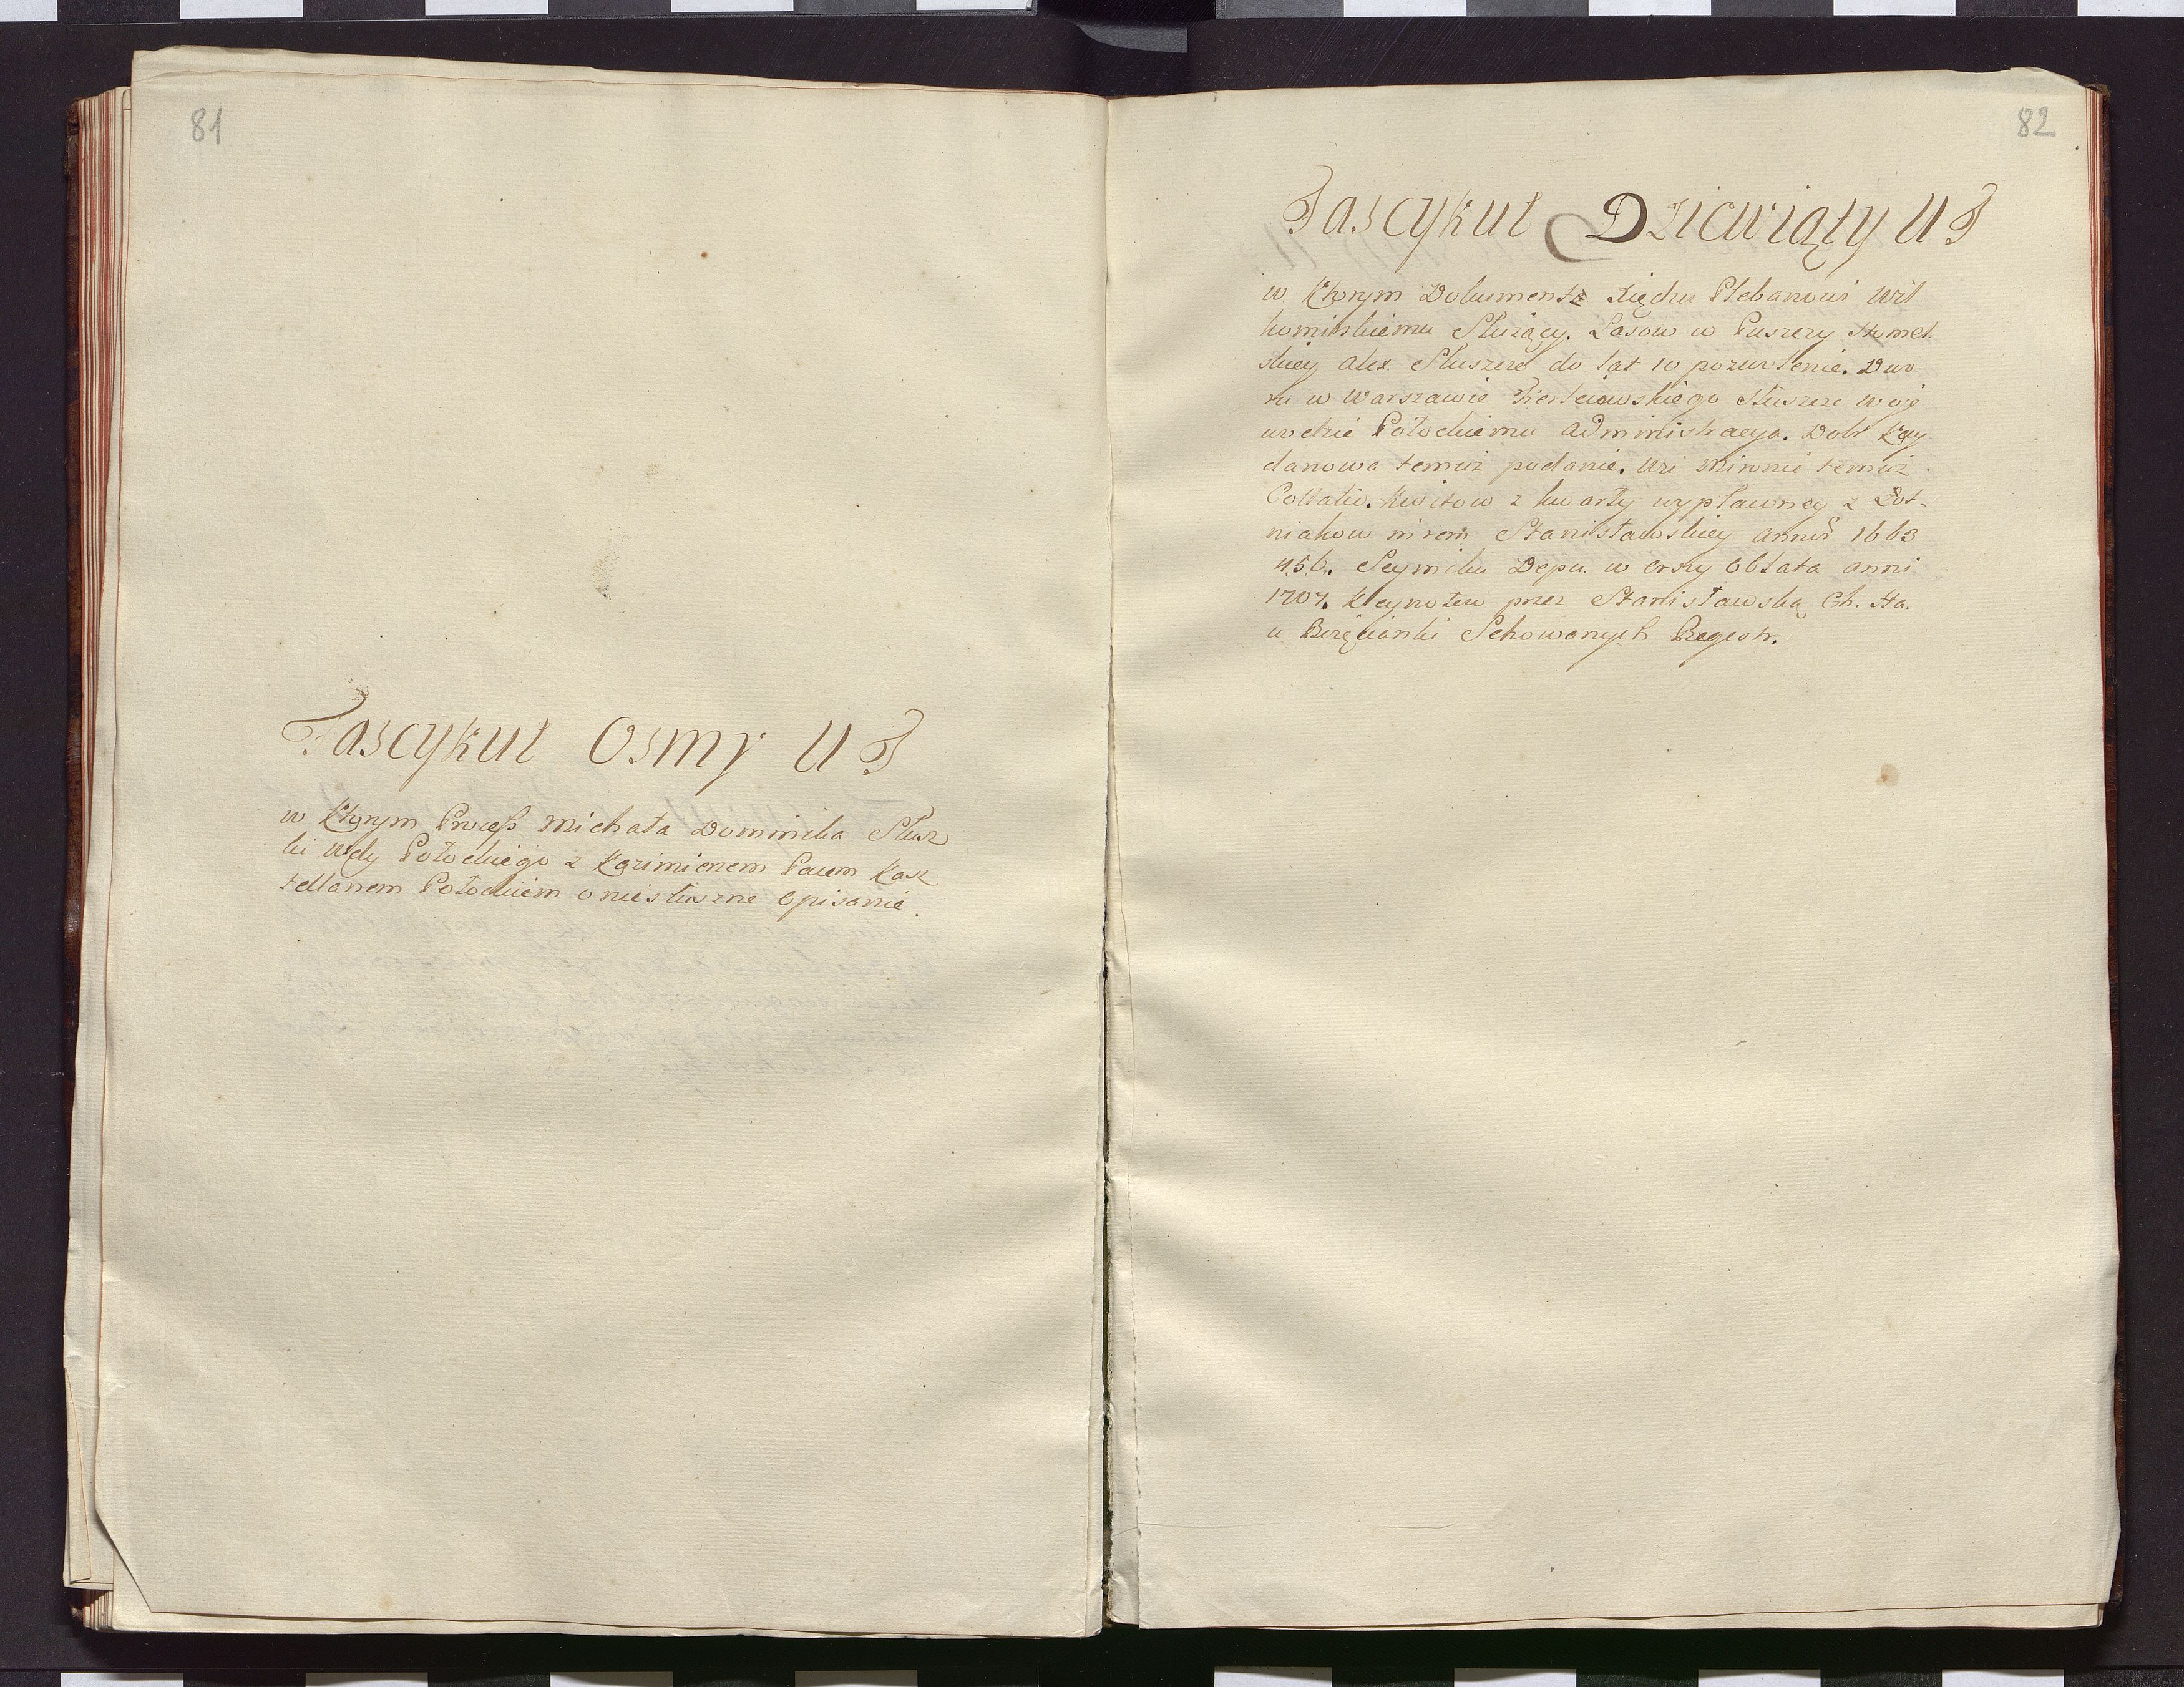 81
Fascykuł Osmy U F
w Ktorym Process Michała Dominika Słusz
ki Wdy Połockiego z Kazimierzem Pacem Kasz
tellanem Połockiem o niesłuszne Opisanie.
82
Fascykuł Dziewiąty U F
w Ktorym Dokumenta Xiędzu Plebanowi Wił
komirskiemu Służący. Lasow w Puszczy
skiey Alex. Słuszce do lat 10 pozwolenie. Dwo-
ru w Warszawie Słuszce Woje
wodzie Połockiemu Administracya. Dobr Koy
danowa temuż podanie. Wsi temuż
Collatio. Kwitow z kwarty wypławney z
niakow Stanisławskiey 1663
4.5.6. Seymiku Depu. w Orszy Oblata anni
1707. Kleynotow przez Stanisławską Ch.
u Schowanych Regestr.